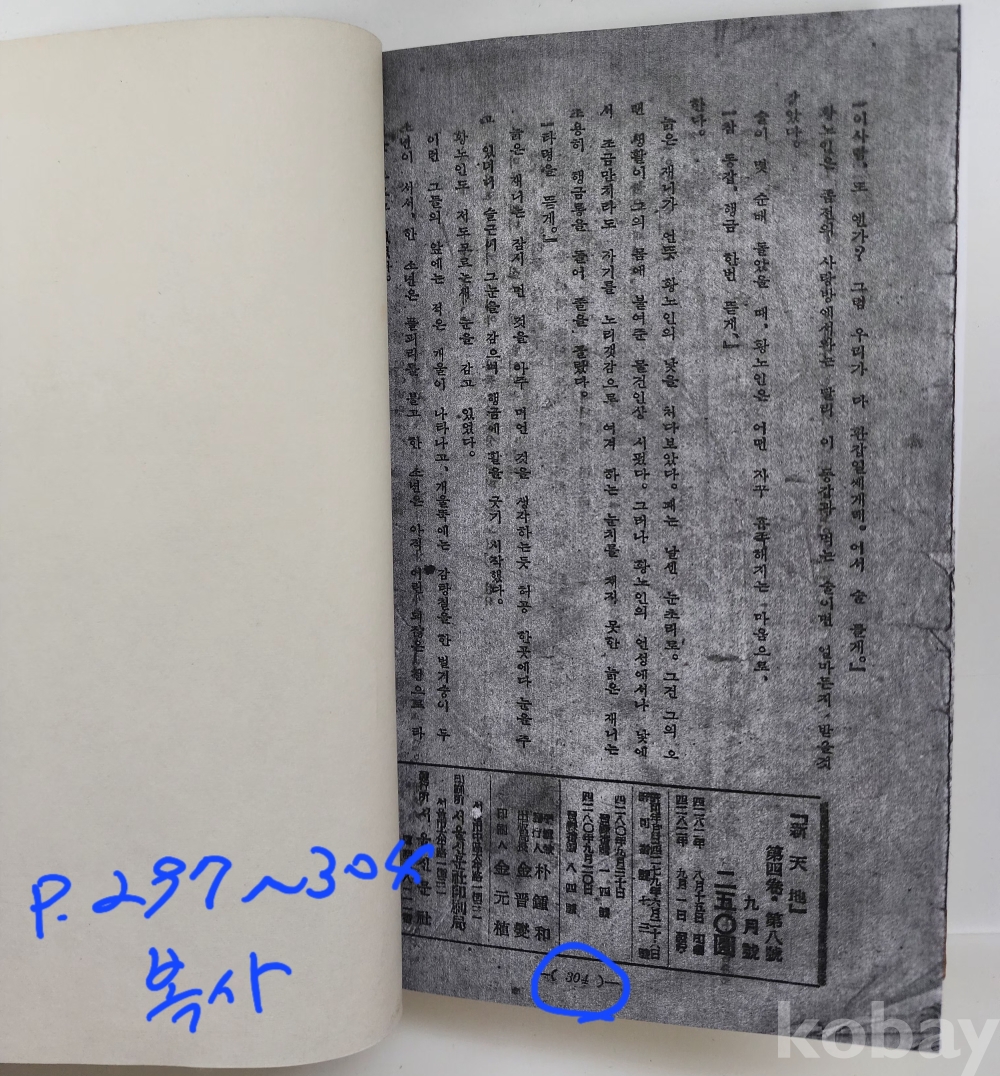 「이사람, 또 왠가? 그럼 우리가 다 환갑일세그려. 어서 술 들게.」
황노인은
술이 몇 순배 돌았을 때, 황노인은 어떤 자꾸 흡족해지는 마음으로,
「참 동갑, 행금 한번 뜯게.」
한다.
늙은 재너가 언뜻 황노인의 낯을 처다보았다. 꽤는 날센 눈초리로. 그건 그의 오
랜 생활이 그의 몸에 붙여준 물건인상 시펐다. 그러나 황노인의 언성에서나 낯에
서 조금만치라도 자기를 노리갯감으로 여겨 하는 눈치를 채지 못한 늙은 재너는
조용히 행금통을 들어 줄을 골랐다.
「타령을 뜯게.」
늙은 재너는 잠시 먼 것을 아주 머언 것을 생각하는듯 허공 한곳에다 눈을 주
고 있더니, 슬그머니 그눈을 감으며 행금에 활을 긋기 시작했다.
황노인도 저두모르는새 눈을 감고 있었다.
이런 그들의 앞에는 적은 개울이 나타나고, 개울뚝에는 감탕칠을 한 벌거숭이 두
소년이 서서, 한 소년은 풀피리를 불고 한 소년은
『新天地』
第四卷·第八號
九月號
二五〇圓
朴鍾和
金晋燮
金元植
서울신문社印刷局
서울신문社
—( 304 )—
P. 297~304
복사
kobay